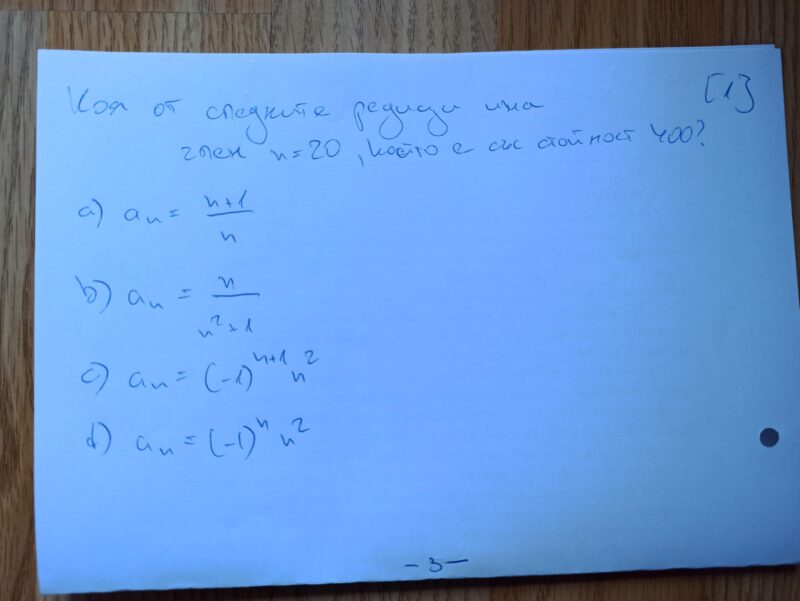 Коя от следните редици има [1]
член n=20, който е със стойност 400?
a) aₙ = (n+1)/n
b) aₙ = n/(n²+1)
c) aₙ = (-1)ⁿ⁺¹ n²
d) aₙ = (-1)ⁿ n²
- 3 -